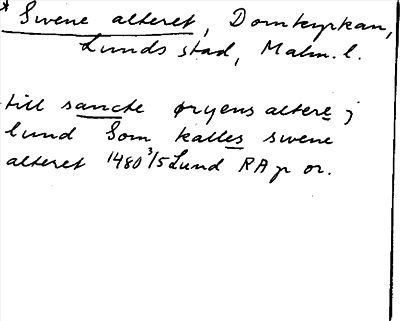 * Swene alteret, Domkyrkan,
Lunds stad, Malm. l.
till sancte øryens altere j
lund Som kalles swene
alteret 1480 3/5 Lund RA p or.